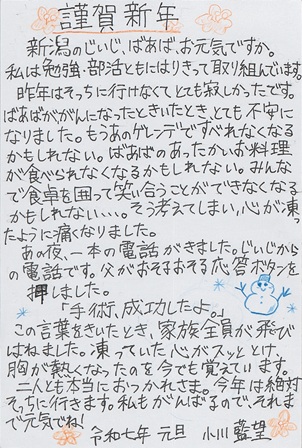 謹賀新年
新潟のじいじ、ばあば、お元気ですか。
私は勉強、部活ともにはりきって取り組んでいます。
昨年はそっちに行けなくてとても寂しかったです。
ばあばががんになったときいたとき、とても不安に
なりました。もうあのゲレンデですべれなくなる
かもしれない。ばあばのあったかいお料理
が食べられなくなるかもしれない。みんな
で食卓を囲って笑い合うことができなくなる
かもしれない...。そう考えてしまい、心が凍っ
たように痛くなりました。
あの夜、一本の電話がきました。じいじから
の電話です。父がおそるおそる応答ボタンを
押しました。
「手術、成功したよ。」
この言葉をきいたとき、家族全員が飛び
はねました。凍っていた心がスッととけ、
胸が熱くなったのを今でも覚えています。
二人とも本当におつかれさま。今年は絶対
そっちに行きます。私もがんばるので、それま
で元気でね!
令和七年 元旦 小川 藍望